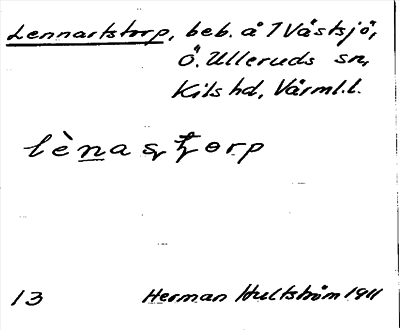 Lennartstorp, beb. å 1 Våstsjö,
Ö. Ulleruds sn,
Kils hd, Värml.l.
lènas torp
13 Herman Hultström 1911